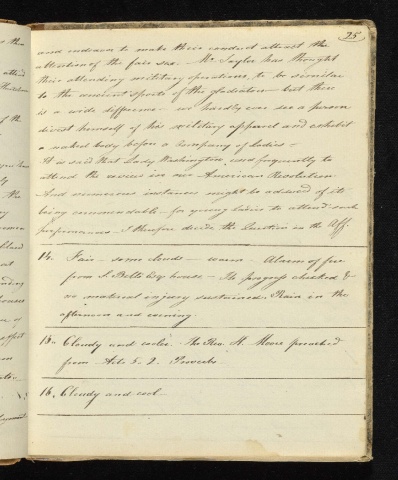 25
and endeavor to make their conduct attract the
attention of the fair sex. — Mr. Taylor has thought
their attending military operations, to be similar
to the ancient sports of the gladiators — but there
is a wide difference — we hardly ever see a person
divest himself of his military apparel and exhibit
a naked body before a company of ladies —
It is said that Lady Washington used frequently to
attend the review in our American Revolution
And numerous instances might be adduced of its
being commendable — for young ladies to attend such
performances — I therefore decide the Question in the Aff.
14. Fair — some clouds — warm — Alarm of fire
from S. Bells Esq. house — Its progress checked &
no material injury sustained. Rain in the
afternoon and evening.
15. Cloudy and cooler. The Rev. H. Moore preached
from Acts 5. 2. Proverbs
16. Cloudy and cool —